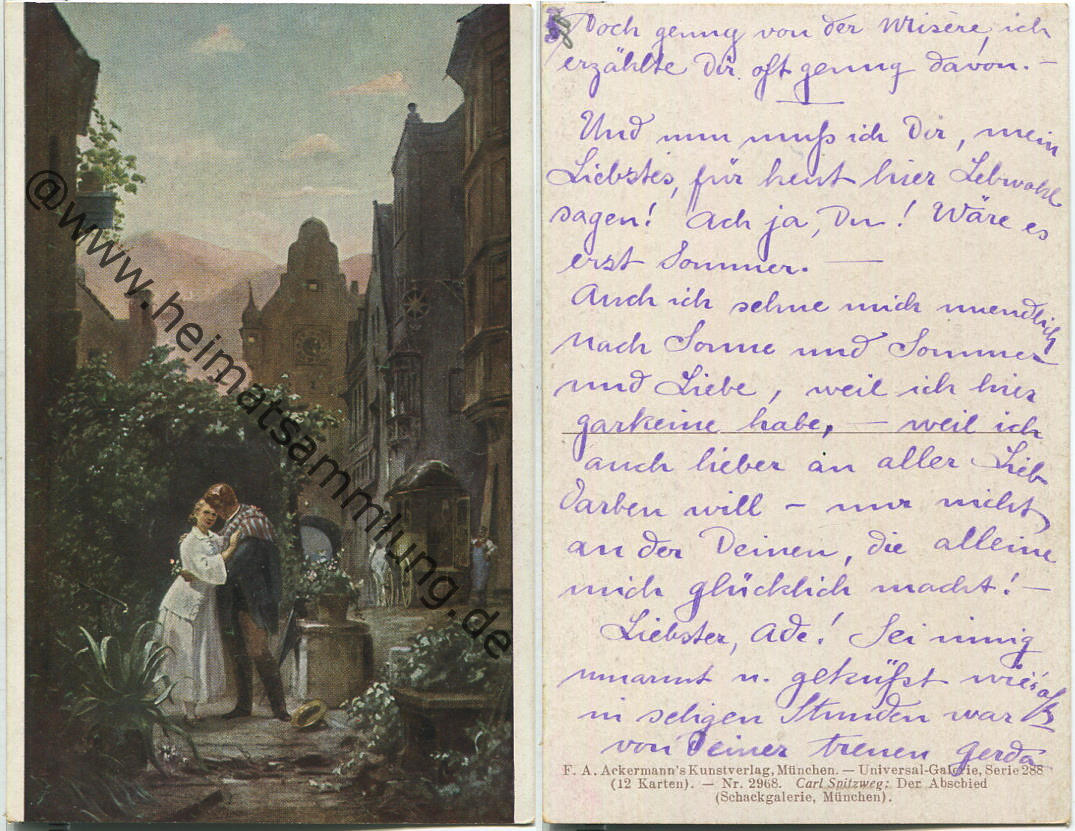 @www.heimatsammlung.de
Doch genug von der Misère, ich
erzählte Dir oft genug davon. –
Und nun muß ich Dir, mein
Liebstes, für heut hier Lebwohl
sagen! Ach ja, Du! Wäre es
erst Sommer. —
Auch ich sehne mich unendlich
nach Sonne und Sommer
und Liebe, weil ich hier
garkeine habe, – weil ich
auch lieber an aller Lieb
darben will – nur nicht
an der Deinen, die alleine
mich glücklich macht! –
Liebster, Ade! Sei innig
umarmt u. geküßt wie's oft
in seligen Stunden war
von Deiner treuen Gerda
F. A. Ackermann's Kunstverlag, München. — Universal-Galerie, Serie 288
(12 Karten). — Nr. 2968. Carl Spitzweg: Der Abschied
(Schackgalerie, München).